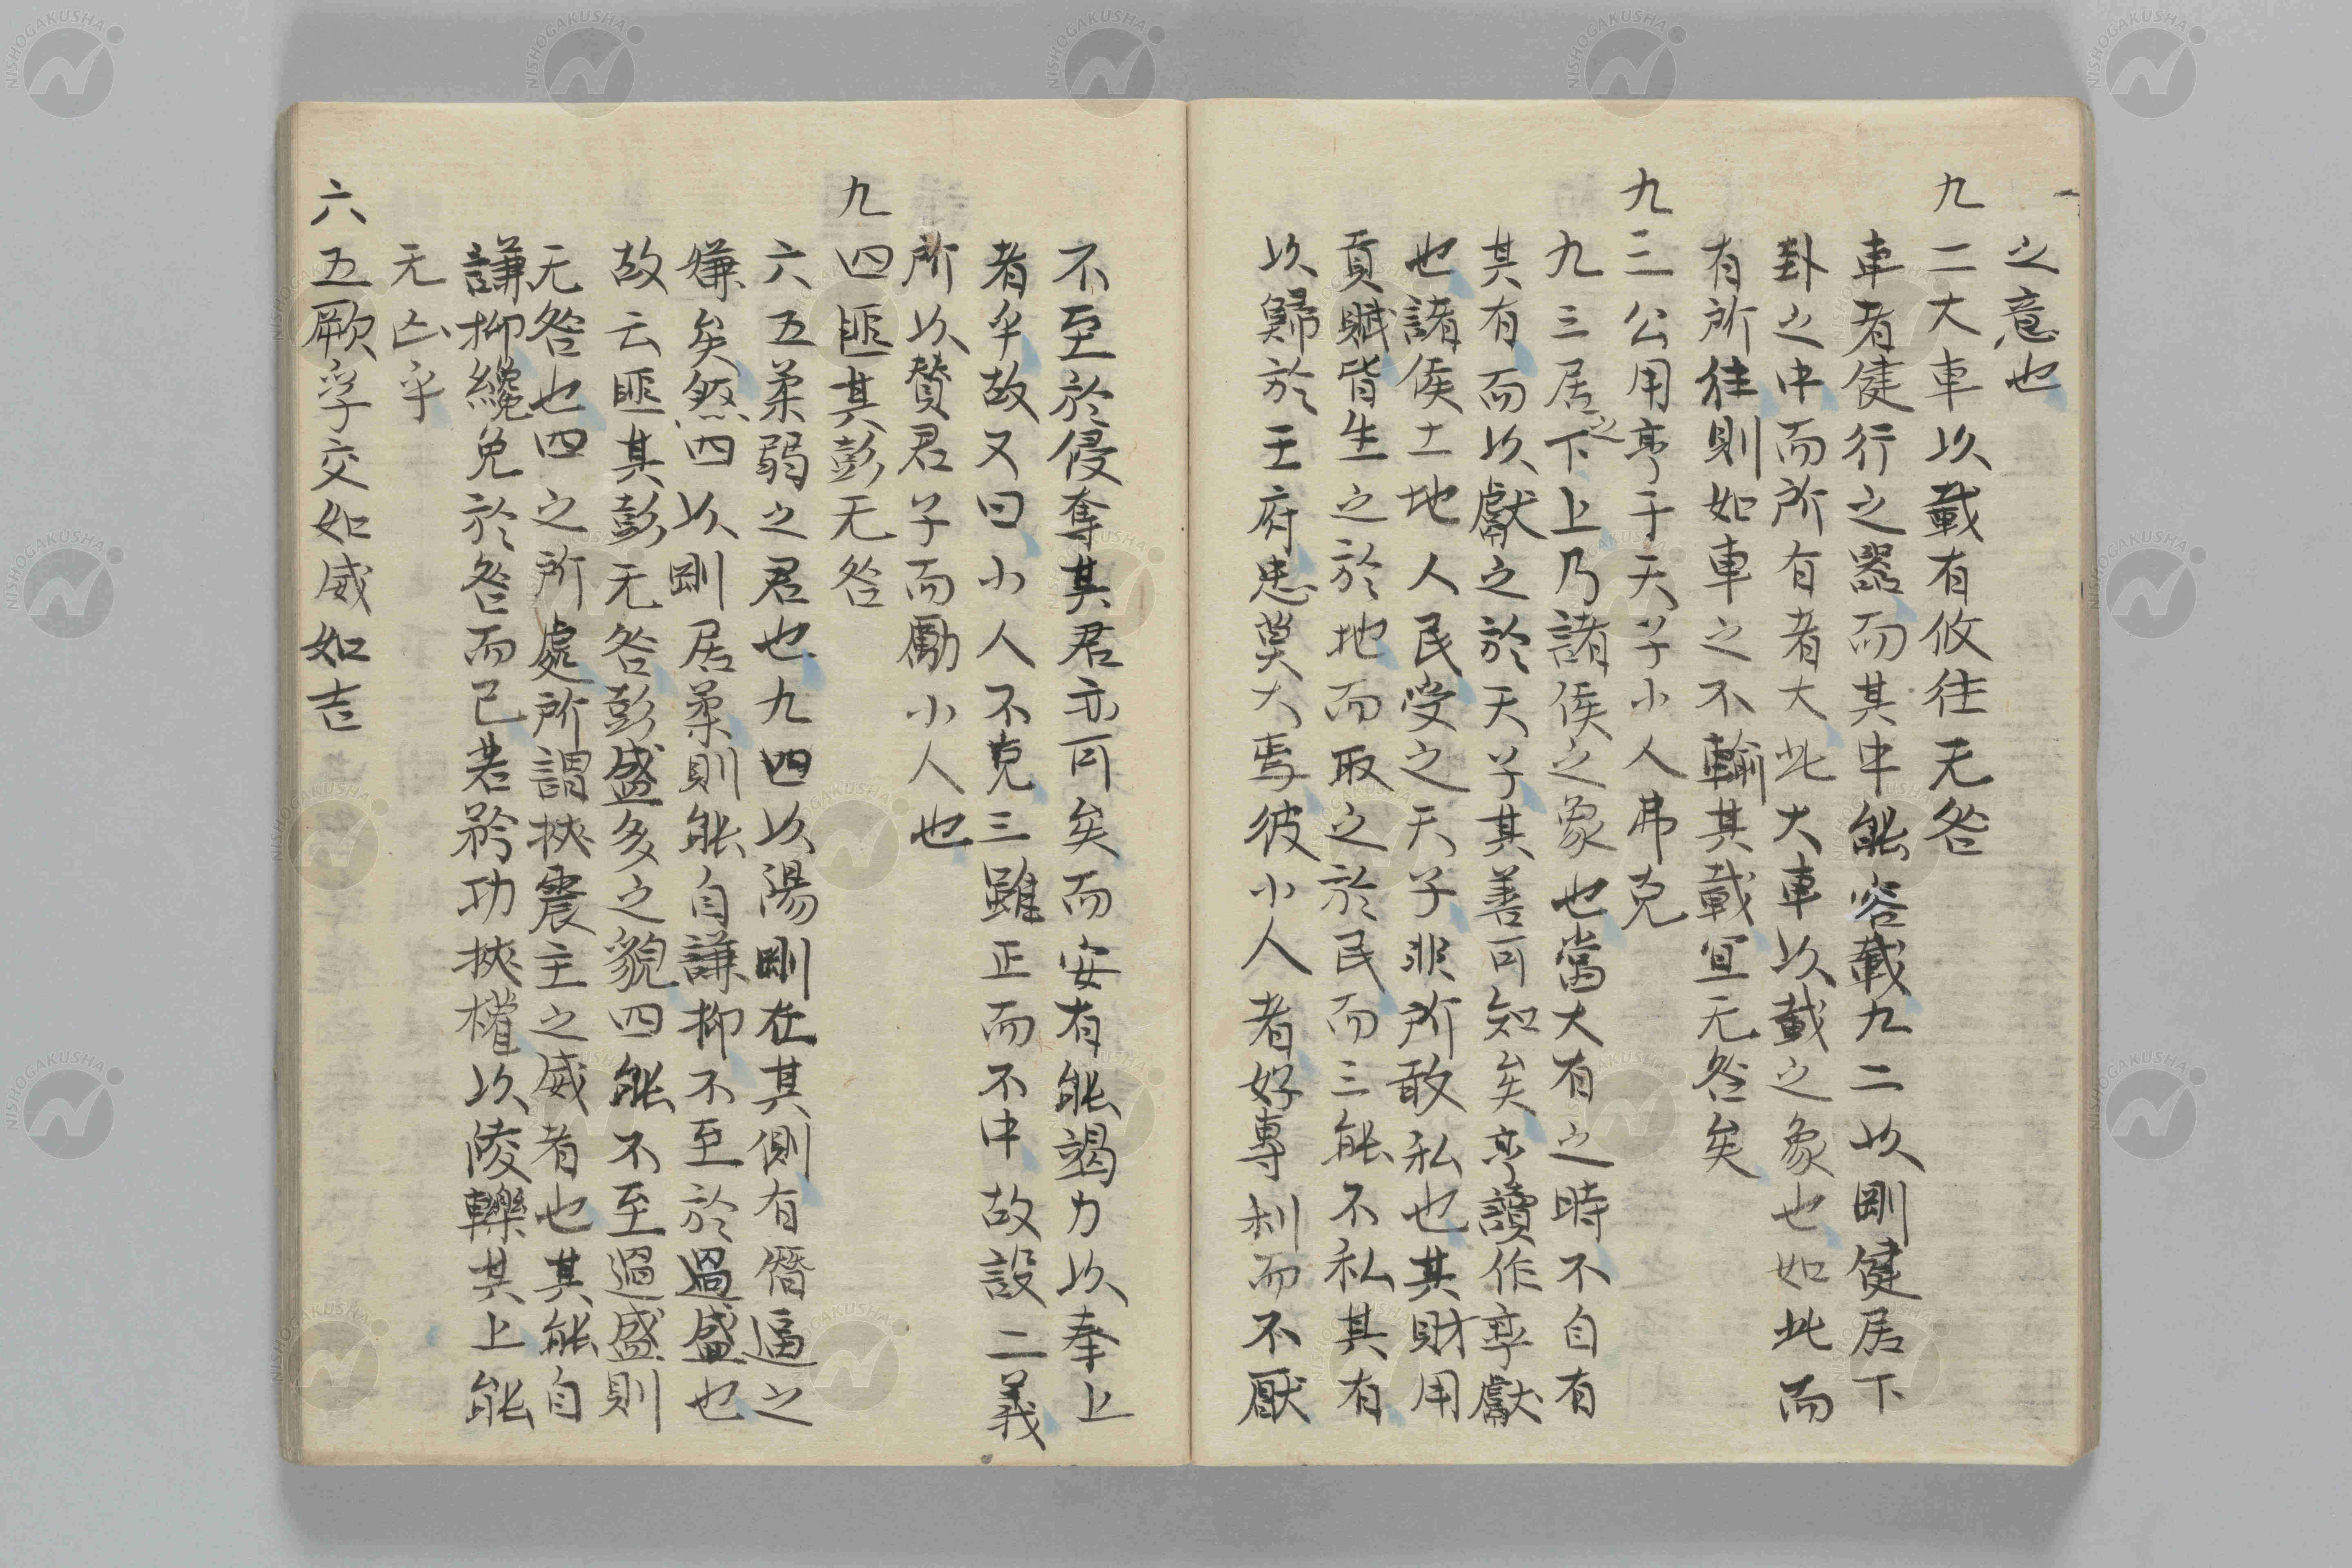 之意也
九二大車以載有攸往无咎
車者健行之器而其中能容載九二以剛健居下
卦之中而所有者大此大車以載之象也如此而
有所往則如車之不輸其載宜无咎矣
九三公用亨于天子小人弗克
九三居下之上乃諸侯之象也當大有之時不自有
其有而以獻之於天子其善可知矣亨讀作享獻
也諸侯土地人民受之天子非所敢私也其財用
貢賦皆生之於地而取之於民而三能不私其有
以歸於王府忠莫大焉彼小人者好專利而不厭
不至於侵奪其君亦可矣而安有能竭力以奉上
者乎故又曰小人不克三雖正而不中故設二義
所以贊君子而勵小人也
九四匪其彭无咎
六五柔弱之君也九四以陽剛在其側有僭逼之
嫌矣然四以剛居柔則能自謙抑不至於過盛也
故云匪其彭无咎彭盛多之貌四能不至過盛則
无咎也四之所處所謂挾震主之威者也其能自
謙抑纔免於咎而已若矜功挾權以陵轢其上能
无凶乎
六五厥孚交如威如吉
NISHOGAKUSHA